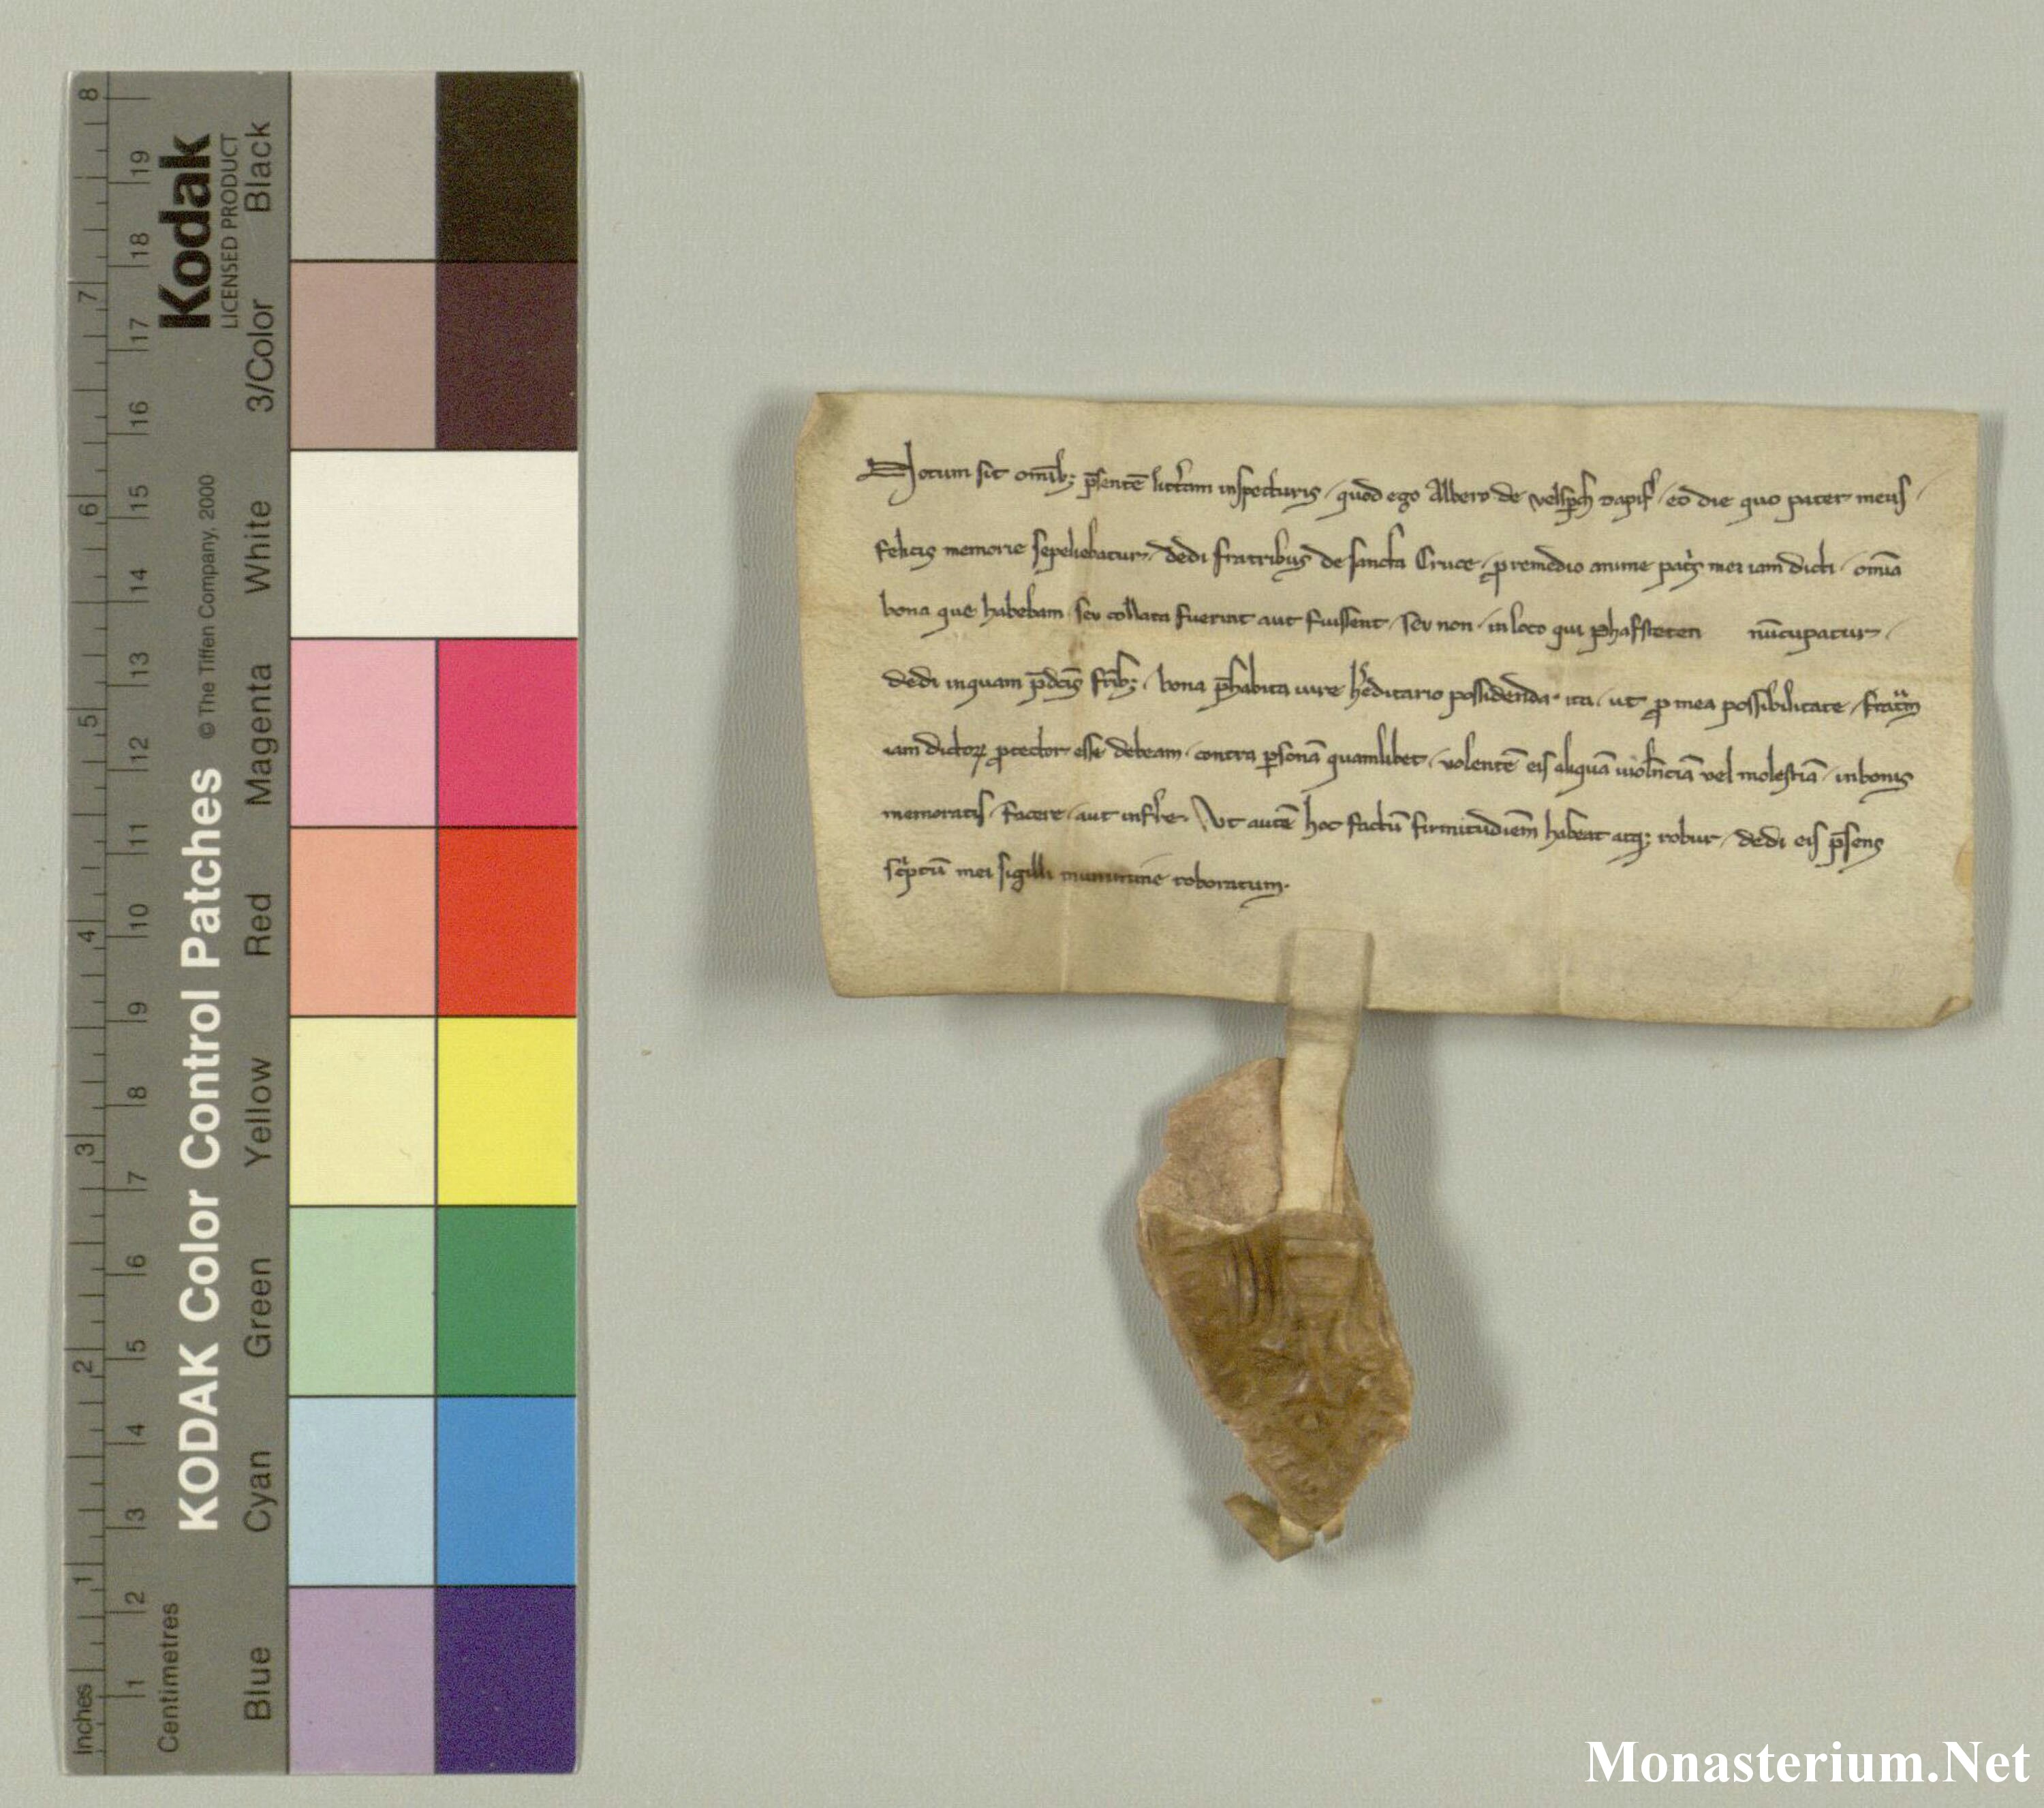 Notum sit om̅ib; p̅sente̅ litt'am inspecturis / quod ego Albero de velsp̅ch dapif' / eo die quo pater meus /
felicis memorie sepeliebatur / dedi fratribus de sancta Cruce / p remedio anime pat's mei iam dicti / om̅ia
bona que habebam / seu collata fuerint aut fuissent / seu non / in loco qui phafsteten nu̅cupatur /
dedi inquam p̅dc̅is fr̅ib; / bona p̅habita iure h'editario possidenda / ita / ut p mea possibilitate / fratru̅m
iam dictoꝝ ptector esse debeam / contra psona̅ quamlibet / volente̅ eis aliqua̅ uiole̅ncia̅ vel molestia̅ / in bonis
memoratis / facere / aut inf're. Ut aute̅ hoc factu̅ firmitudine̅m habeat atq; robur / dedi eis p̅sens
sc'ptu̅ mei sigilli munimine roboratum.
KODAK Color Control Patches
© The Tiffen Company, 2000
Kodak
LICENSED PRODUCT
Inches 1 2 3 4 5 6 7 8
Centimetres 1 2 3 4 5 6 7 8 9 10 11 12 13 14 15 16 17 18 19
Blue Cyan Green Yellow Red Magenta White 3/Color Black
Monasterium.Net